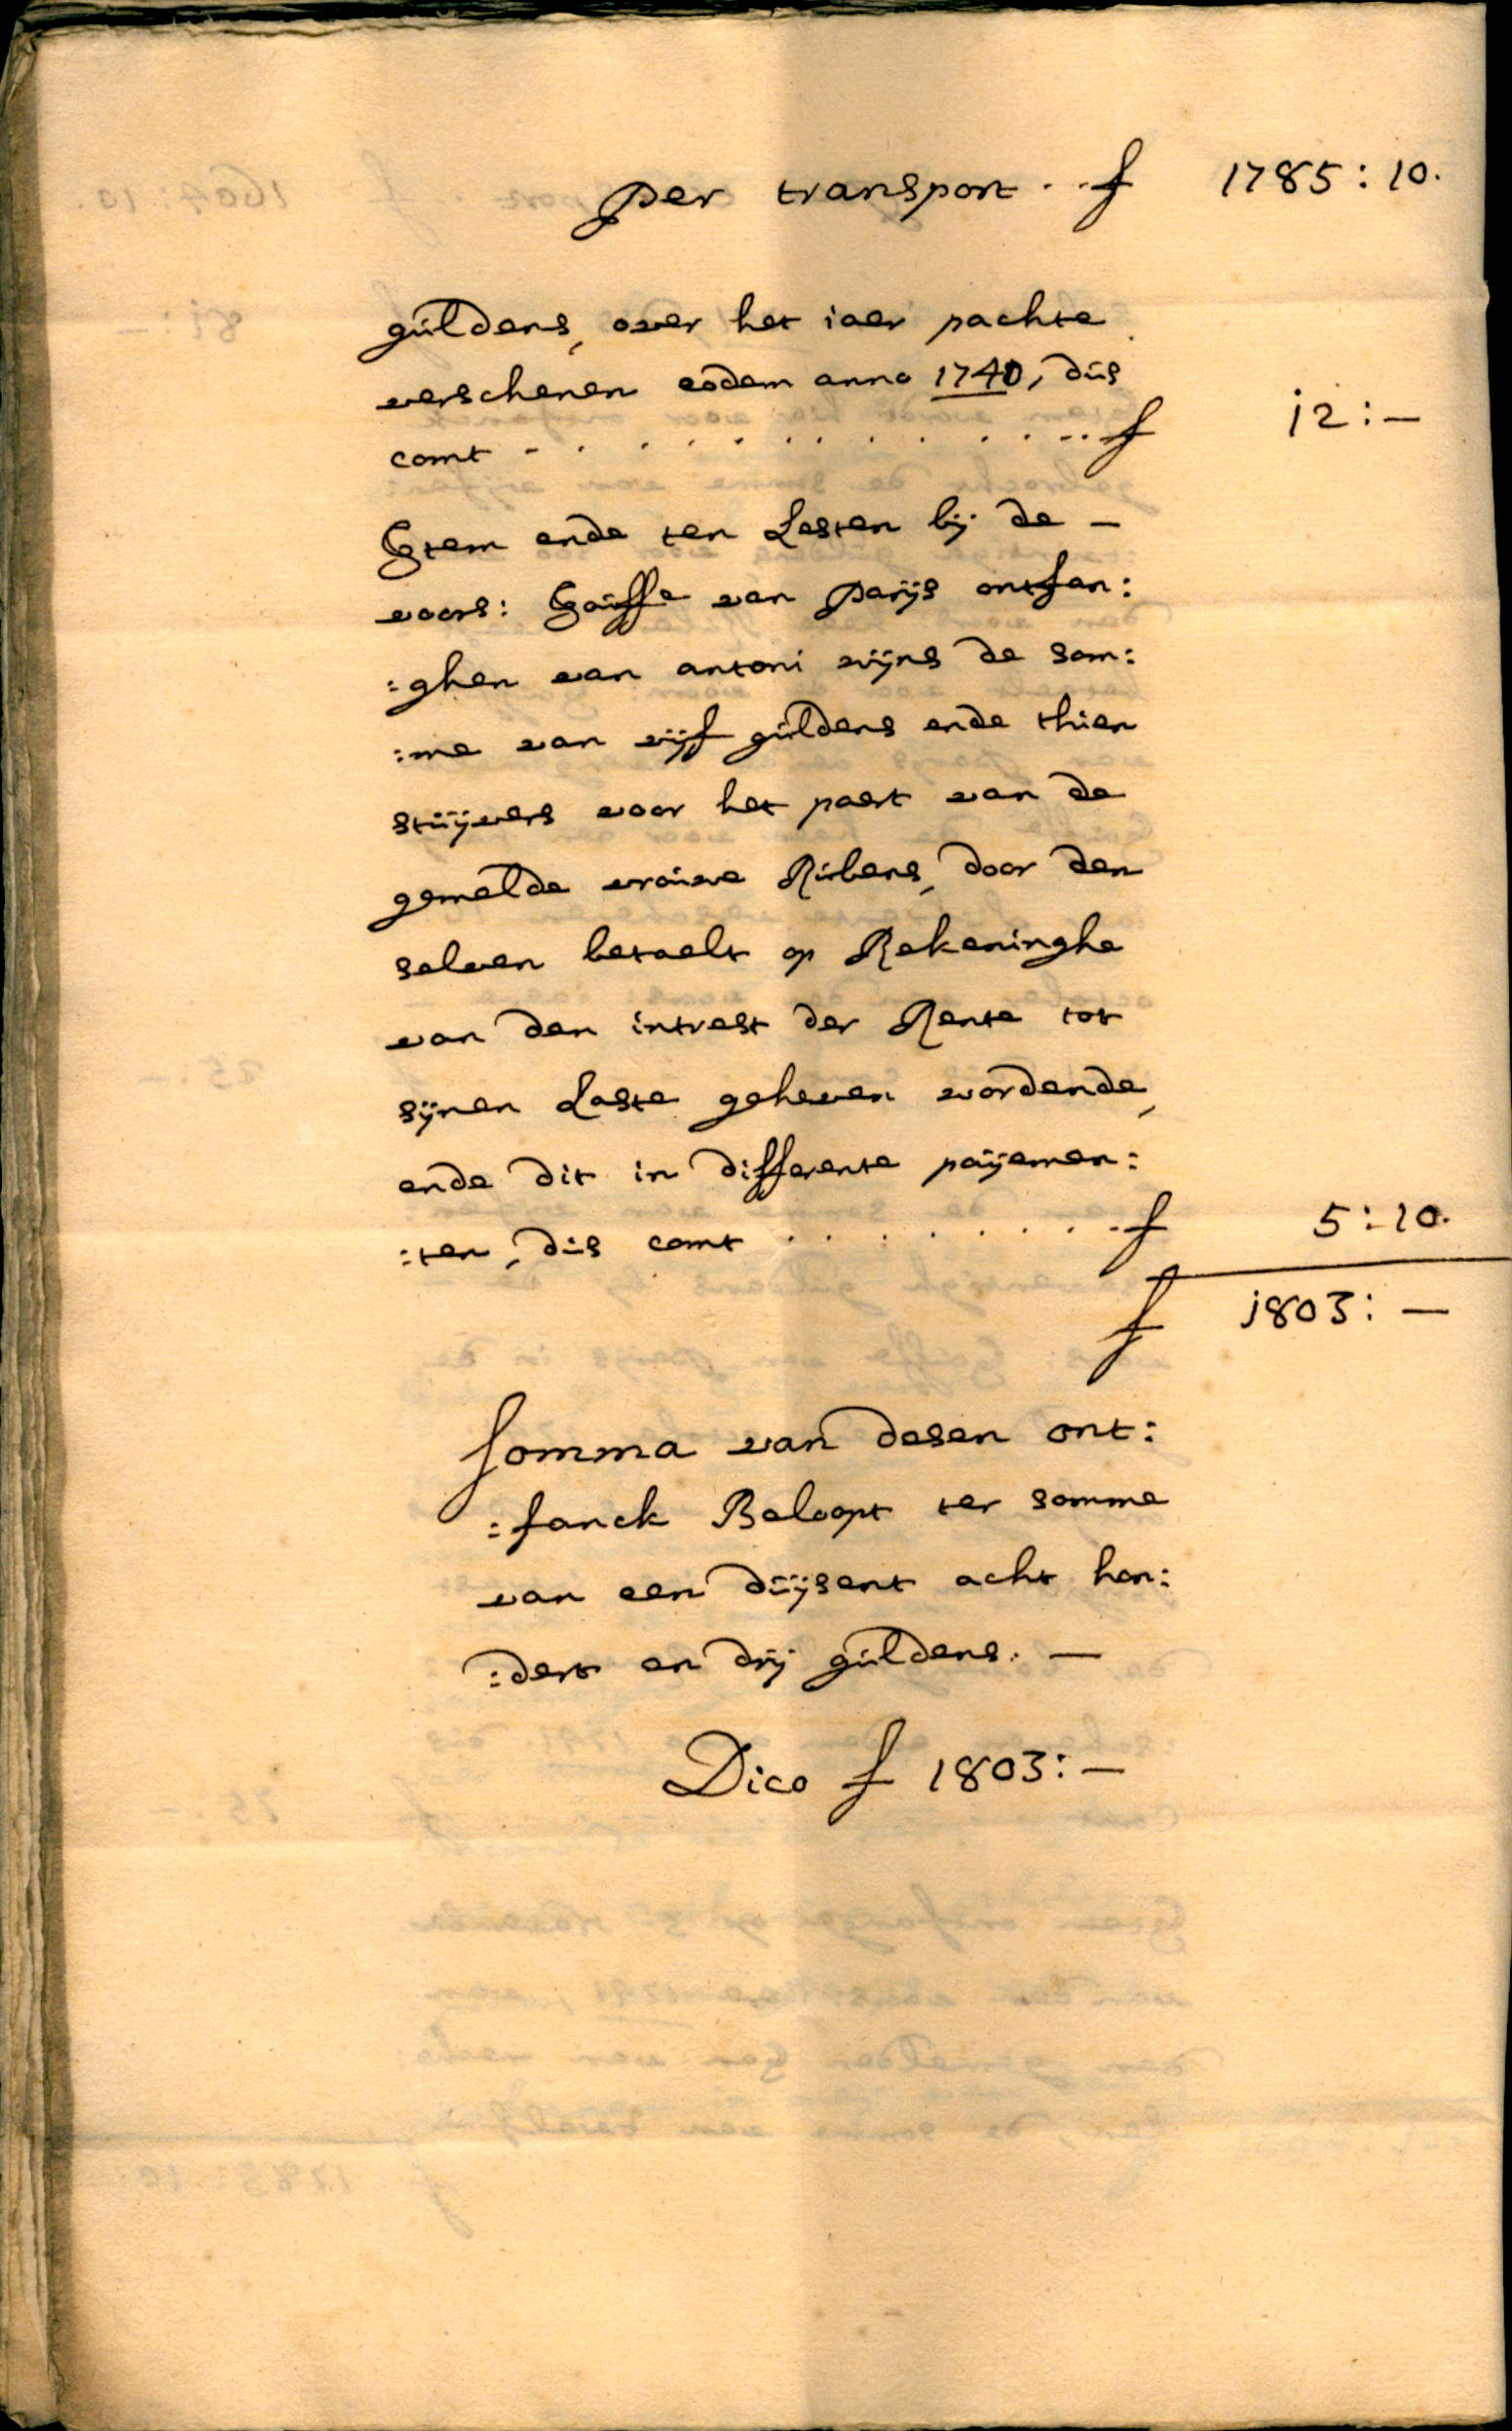 per transport . . f 1785 : 10.
guldens, over het iaer pachte
verschenen eodem anno 1740, dus
comt - . . . . . . . . . . . f i2 : —
Item ende ten Lesten bij de —
voors: Jouffe van Parijs ontfan:
:ghen van antoni wijns de som:
:me van vijf guldens ende thien
stuijvers voor het paert van de
gemelde vrouwe Rubens, door den
selven betaelt op Rekeninghe
van den intrest der Rente tot
sijnen Laste geheven wordende,
ende dit in differente paijemen:
:ten, dus comt . . . . . . . . f 5 : 10.
f i803 : —
Somma van desen ont:
:fanck Beloopt ter somme
van een duijsent acht hon:
:dert en drij guldens. —
Dico f 1803 : —